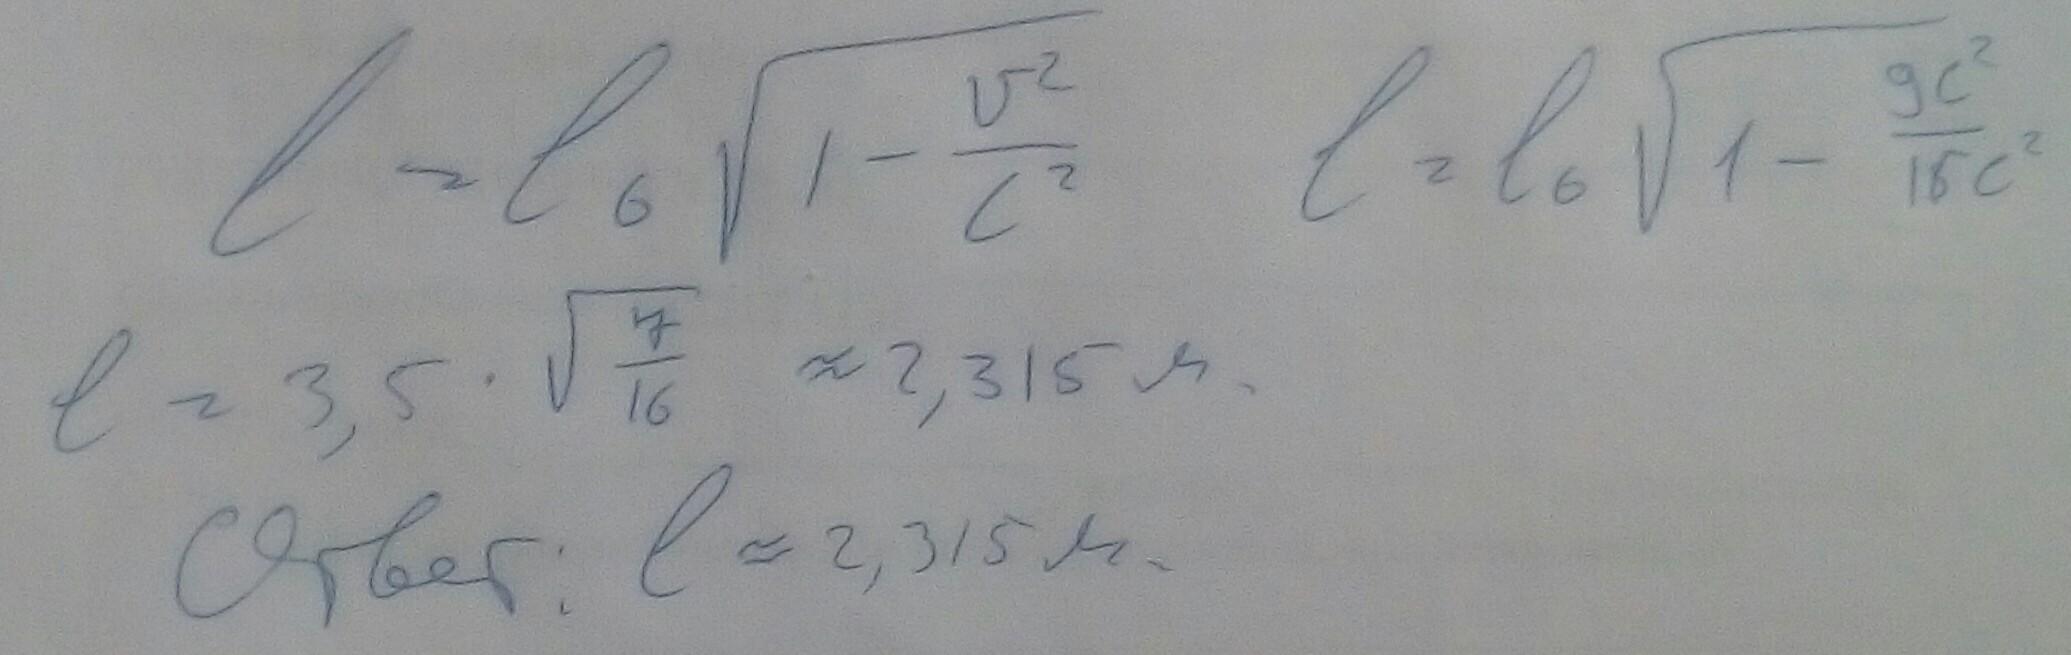 l = l₀ √(1 - v²/c²) l = l₀ √(1 - 9c²/16c²)
l = 3,5 · √(7/16) ≈ 2,315 м.
Ответ: l ≈ 2,315 м.